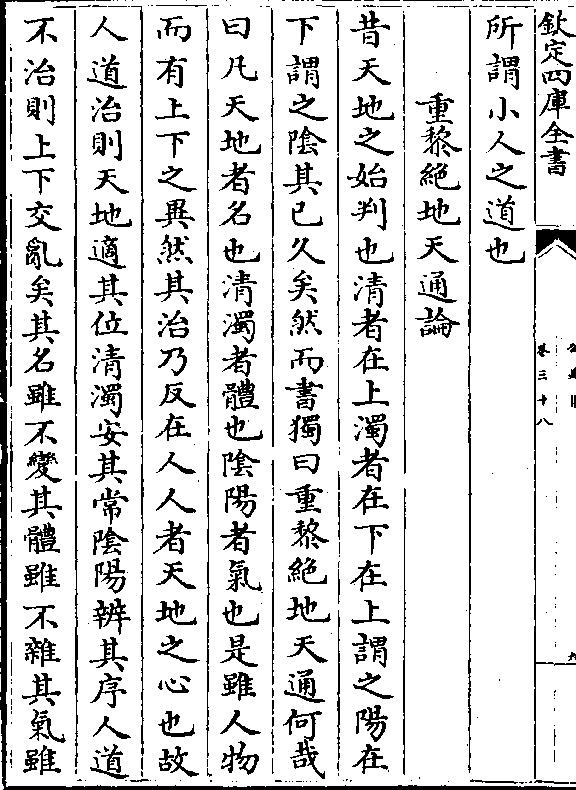 欽定四庫全書
卷三十八
所謂小人之道也
重黎絕地天通論
昔天地之始判也清者在上濁者在下在上謂之陽在
下謂之陰其已久矣然而書獨曰重黎絕地天通何哉
曰凡天地者名也清濁者體也陰陽者氣也是雖人物
而有上下之異然其治乃反在人人者天地之心也故
人道治則天地適其位清濁安其常陰陽辨其序人道
不治則上下交亂矣其名雖不變其體雖不雜其氣雖